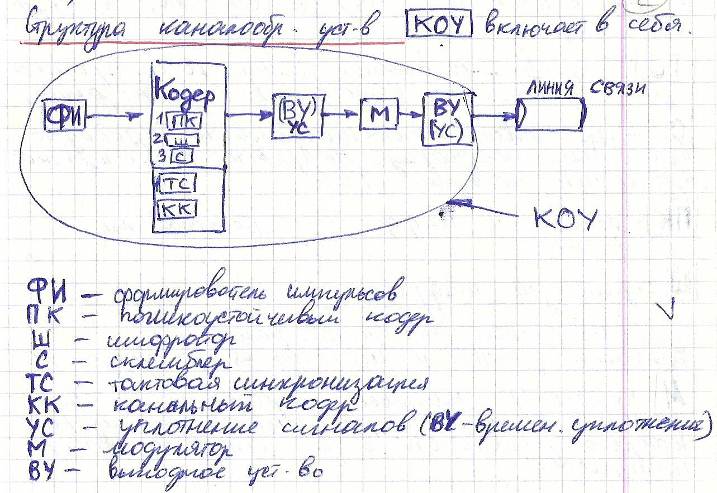 Структура каналообр. уст-в КОУ включает в себя.
ЛИНИЯ СВЯЗИ
ФИ
Кодер
1 ПК
2 Ш
3 С
ТС
КК
(ВУ)
УС
М
ВУ
(УС)
КОУ
ФИ – формирователь импульсов
ПК – помехоустойчивый кодер
Ш – шифратор
С – скремблер
ТС – тактовая синхронизация
КК – канальный кодер
УС – уплотнение сигналов (ВУ-времен. уплотнение)
М – модулятор
ВУ – выходное уст-во